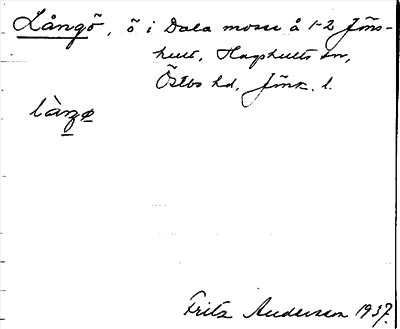 Långö, ö i Dala mosse å 1-2 Jöns-
hult, Hagshults sn,
Östbo hd, Jönk. l.
làŋø
Fritz Andersson 1937.